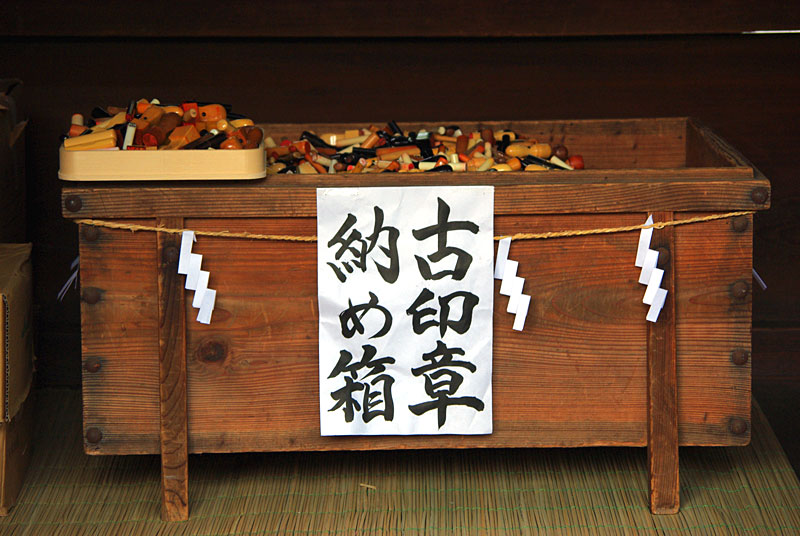 古印章
納め箱